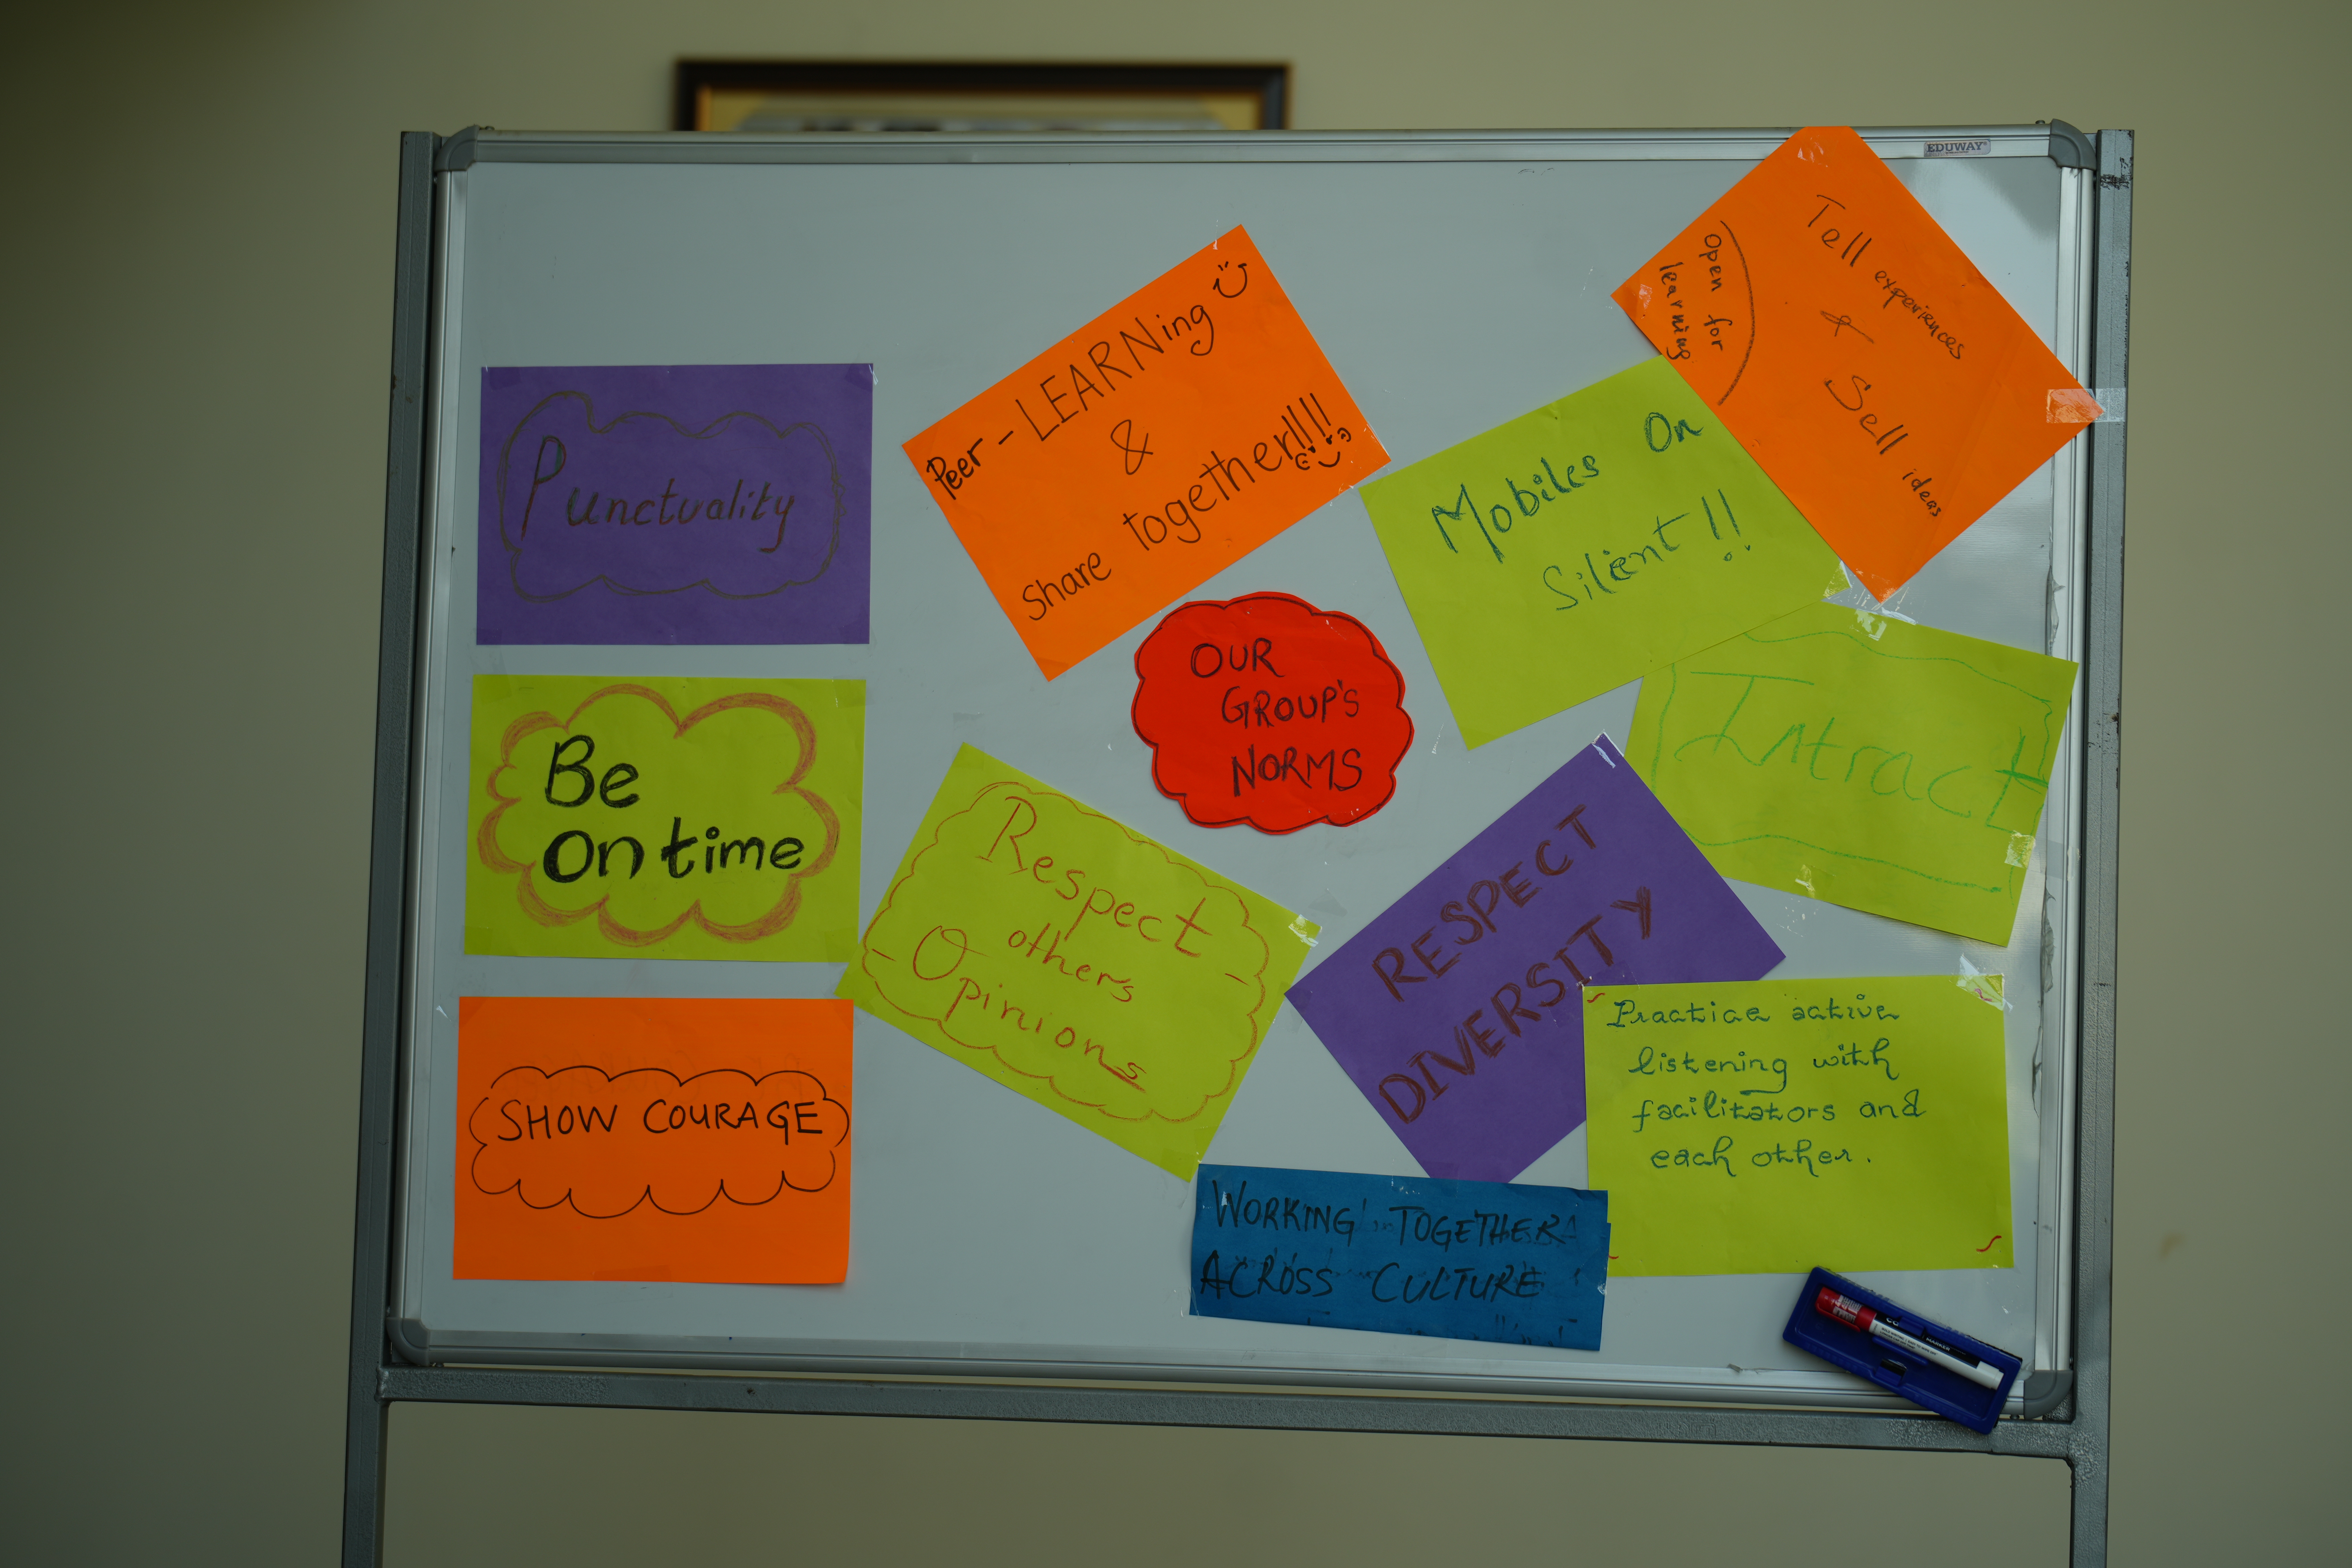 EDUWAY
Punctuality
Be
On time
SHOW COURAGE
Peer - LEARNing
&
Share together!!!!
OUR
GROUP'S
NORMS
Respect
others
- Opinions -
Mobiles On
Silent !!
Tell experiences
&
Sell ideas
Open for
learning
Intract
RESPECT
DIVERSITY
Practice active
listening with
facilitators and
each other.
WORKING TOGETHER
ACROSS CULTURE